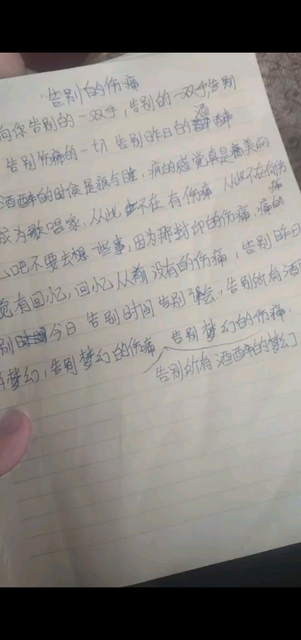 告别的伤痛
向你告别的一双手,告别的一双手告别
告别伤痛的一切 告别昨日的酒醉
酒醉的时候是很今睡,痛的感觉真是痛美的
成为歌唱家,从此不在有伤痛 从此不在有伤痛
心吧不要去想 些事,因为那封印的伤痛,痛的
觉有回忆,回忆从前没有的伤痛,告别昨日
别今日 告别时间告别 会,告别所有酒
梦幻,告别梦幻的伤痛 告别梦幻的伤痛.
告别所有酒醉的梦幻